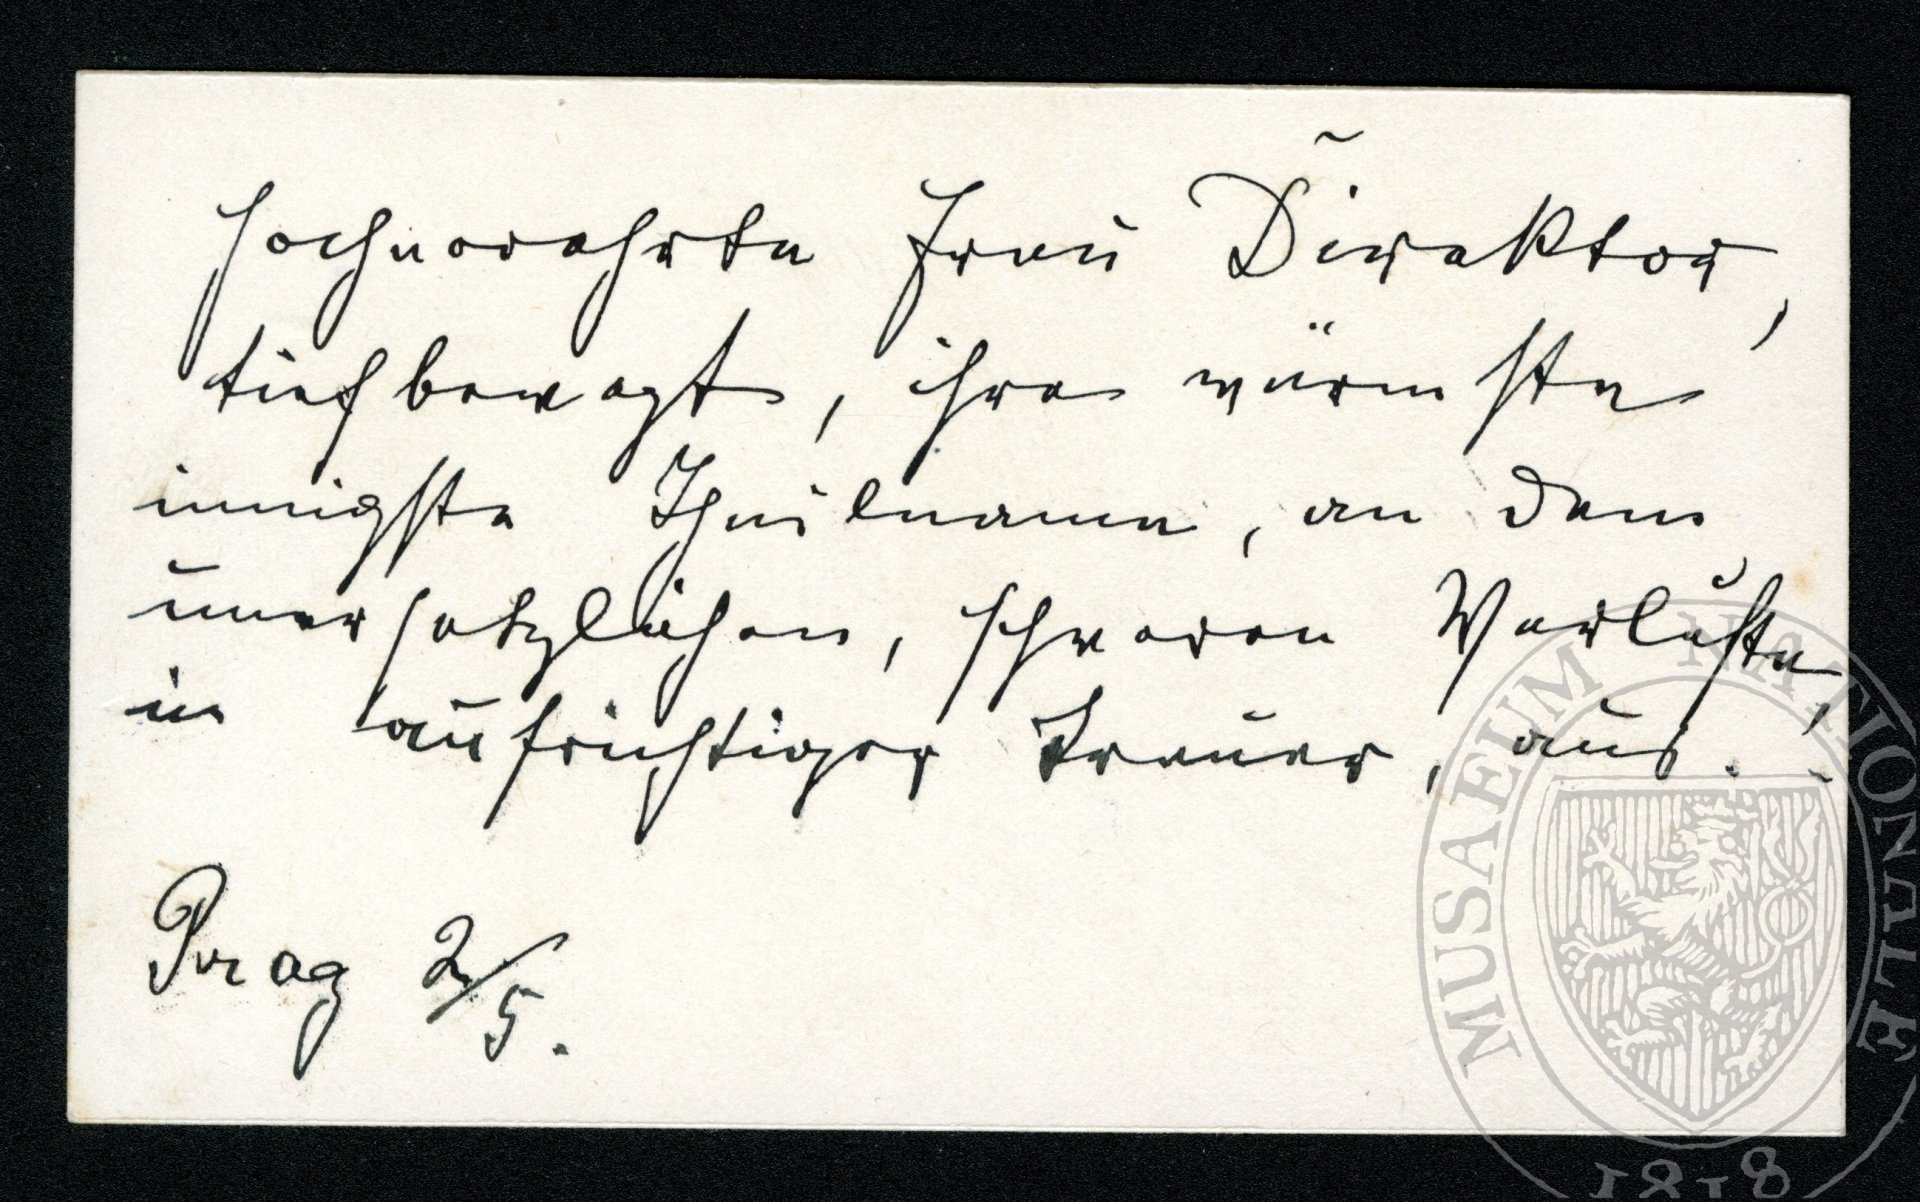 Hochverehrte Frau Direktor,
tiefbewegt, ihre wärmste
innigste Theilname, an dem
unersetzlichen, schweren Verluste,
in aufrichtiger Trauer, aus.
Prag 2/5.
MUSAEUM NATIONALE
1818